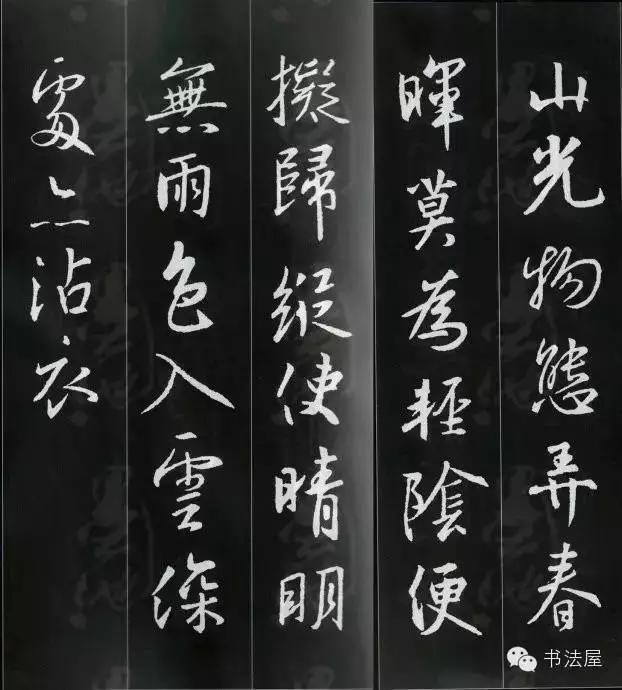 山光物態弄春
暉莫為輕陰便
擬歸縱使晴明
無雨色入雲深
處亦沾衣
书法屋